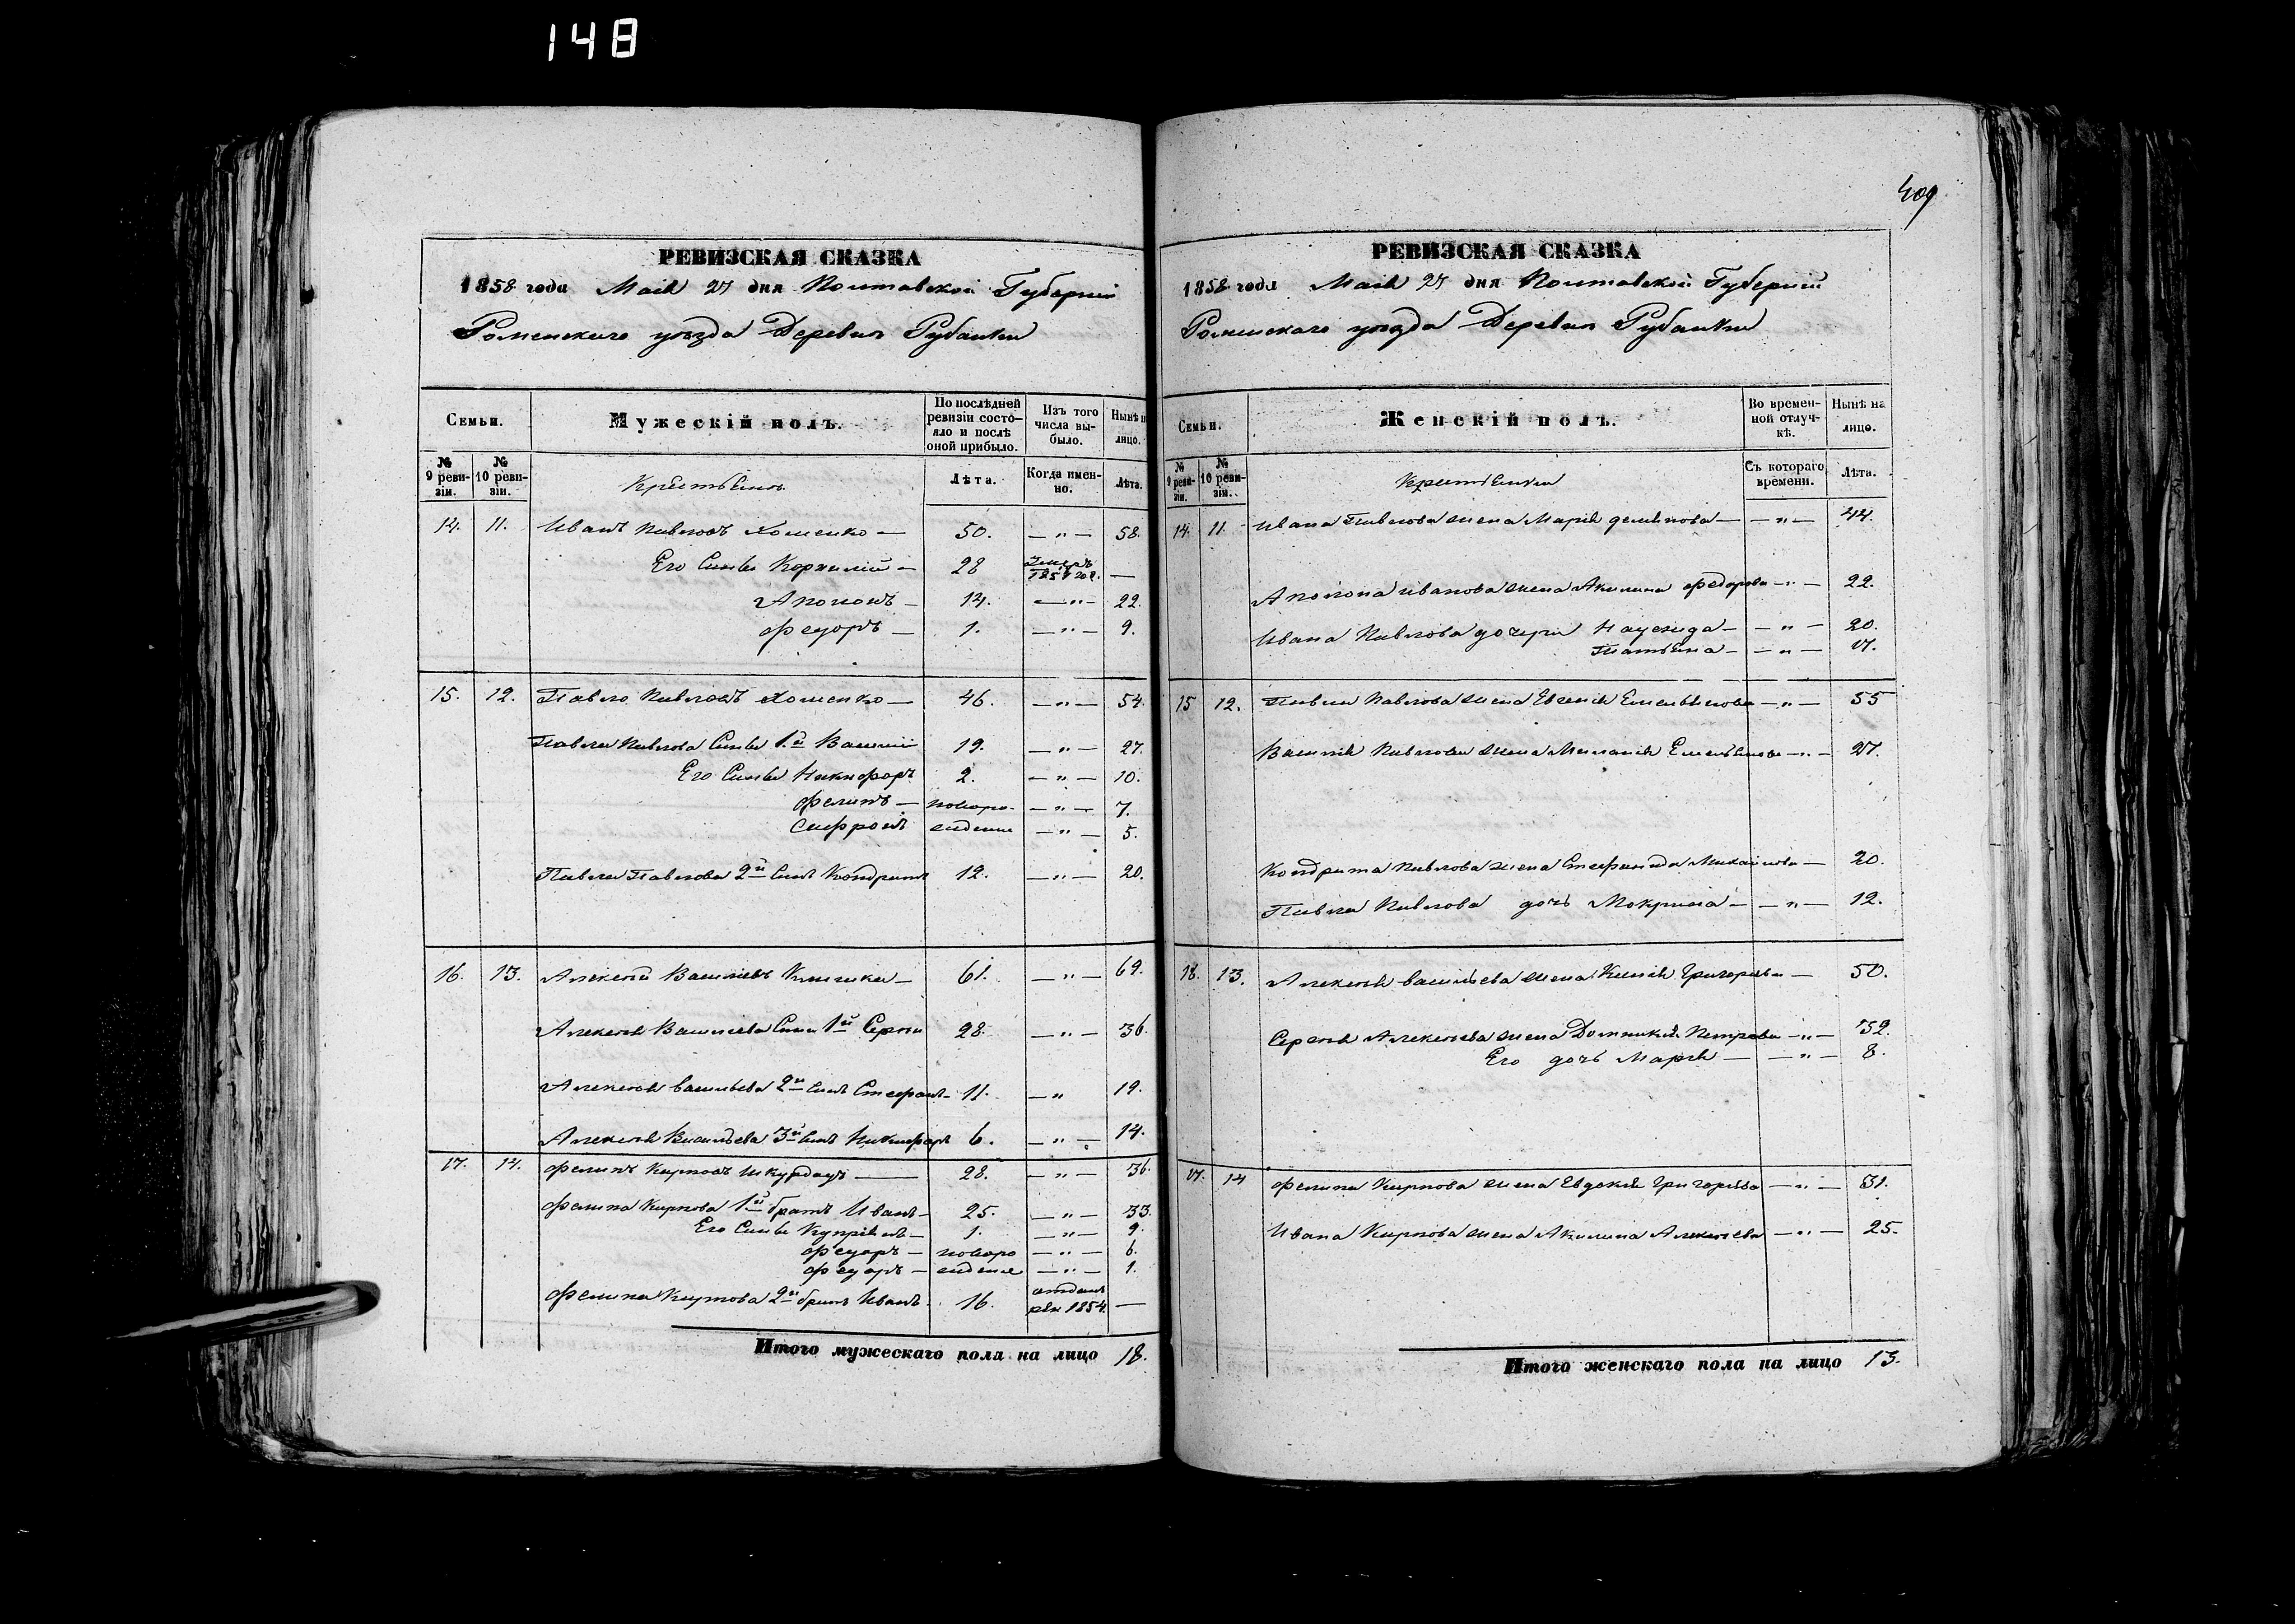 148
409
РЕВИЗСКАЯ СКАЗКА
1858 года Маія 27 дня Полтавской Губерніи
Роменскаго уѣзда Деревни Рубанки
Семьи.
Мужескій полъ.
По послѣдней ревизіи состояло и послѣ оной прибыло.
Изъ того числа выбыло.
Нынѣ на лицо.
№ 9 ревизіи.
№ 10 ревизіи.
Крестьяне
Лѣта.
Когда именно.
Лѣта.
14. 11. Иванъ Павловъ Хоменко — 50. — " — 58.
Его Сынъ Корнилій — 28 1857 —
Аполонъ — 14. — " — 22.
Федоръ — 1. — " — 9.
15. 12. Павло Павловъ Хоменко — 46. — " — 54.
Павла Павлова Сынъ 1й Василій 19. — " — 27.
Его Сынъ Никифоръ 2. — " — 10.
Филипъ — новоро- — " — 7.
Сафронъ жденные — " — 5.
Павла Павлова 2й Сынъ Кондратъ 12. — " — 20.
16. 13. Алексѣй Васильевъ — 61. — " — 69.
Алексѣя Васильева Сынъ 1й Сергѣй 28. — " — 36.
Алексѣя Васильева 2й Сынъ Стефанъ — 11. — " 19.
Алексѣя Васильева 3й Сынъ Никифоръ 6. — " — 14.
17. 14. Филипъ Карповъ Шкурдаръ — 28. — " — 36.
Филипа Карпова 1й братъ Иванъ — 25. — " — 33.
Его Сынъ Купріянъ — 1. — " — 9.
Федоръ — новоро — " — 6.
Федоръ — жденные — " — 1.
Филипа Карпова 2й братъ Иванъ 16. отданъ рек 1854. —
Итого мужескаго пола на лицо 18.
РЕВИЗСКАЯ СКАЗКА
1858 года Маія 27 дня Полтавской Губерніи
Роменскаго уѣзда Деревни Рубанки
Семьи.
Женскій полъ.
Во временной отлучкѣ.
Нынѣ на лицо.
№ 9 ревизіи.
№ 10 ревизіи.
Крестьянки
Съ котораго времени.
Лѣта.
14. 11. Ивана Павлова жена Марія Демьянова — — " — 44.
Аполона Иванова жена Акилина Федорова — " — 22.
Ивана Павлова дочери Надежда — — " — 20.
Татьяна — — " — 17.
15 12. Павла Павлова жена Евгенія Емельянова — " — 55
Василія Павлова жена Меланія Емельянова — " — 27.
Кондрата Павлова жена Стефанида Михайлова — 20.
Павла Павлова дочь Мокрина — — " — 12.
16. 13. Алексѣя Васильева жена Ксенія Григорьева — 50.
Сергѣя Алексѣева жена Домникія Петрова — " — 32.
Его дочь Марія — — " — 8.
17. 14 Филипа Карпова жена Евдокія Григорьева — " — 31.
Ивана Карпова жена Акилина Алексѣева — " — 25.
Итого женскаго пола на лицо 13.